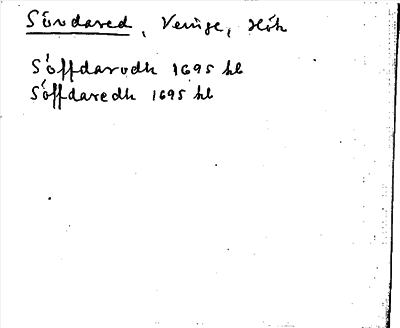 Söudared, Veinge, Hök
Söffdarödh 1695 hl
Söffdaredh 1695 hl